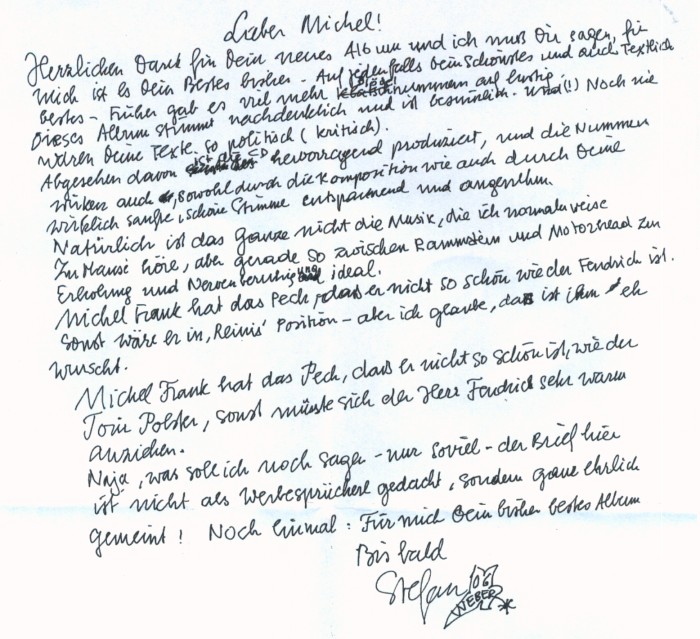 Lieber Michel!
Herzlichen Dank für Dein neues Album und ich muß Dir sagen, für
mich ist es Dein Bestes bisher - Auf jedenfalls Dein schönstes und auch Textlich
bestes - Früher gab es viel mehr nummern auf lustig
Dieses Album stimmt nachdenklich und ist besinnlich. und (!) Noch nie
waren Deine Texte so politisch (kritisch).
Abgesehen davon ist die CD hervorragend produziert, und die Nummern
wirken auch, sowohl durch die Komposition wie auch durch Deine
wirklich sanfte, schöne Stimme entspannend und angenehm.
Natürlich ist das ganze nicht die Musik, die ich normalerweise
Zu Hause höre, aber gerade so zwischen Rammstein und Motorhead zur
Erholung und Nervenberuhigung ideal.
Michel Frank hat das Pech, das er nicht so schön wie der Fendrich ist.
Sonst wäre er in 'Reinis' Position - aber ich glaube, das ist ihm eh
wurscht.
Michel Frank hat das Pech, dass er nicht so schön ist, wie der
Toni Polster, sonst müsste sich der Herr Fendrich sehr warm
anziehen.
Naja, was soll ich noch sagen - nur soviel - der Brief hier
ist nicht als Werbesprücherl gedacht, sondern ganz ehrlich
gemeint! Noch einmal: Für mich Dein bisher bestes Album
Bis bald
Stefan
WEBER